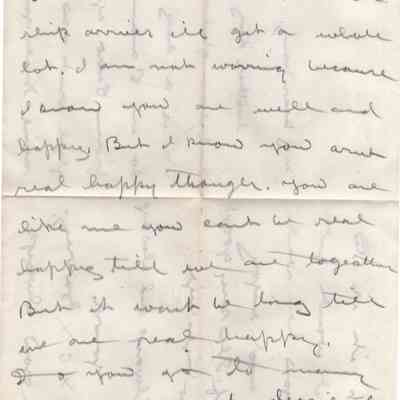 ship arrives ill get a whole
lot. I am not worring because
I know you are well and
happy, But I know you arnt
real happy though. you are
like me you cant be real
happy till we are together
But it wont be long till
we are real happy.
Do you go to many